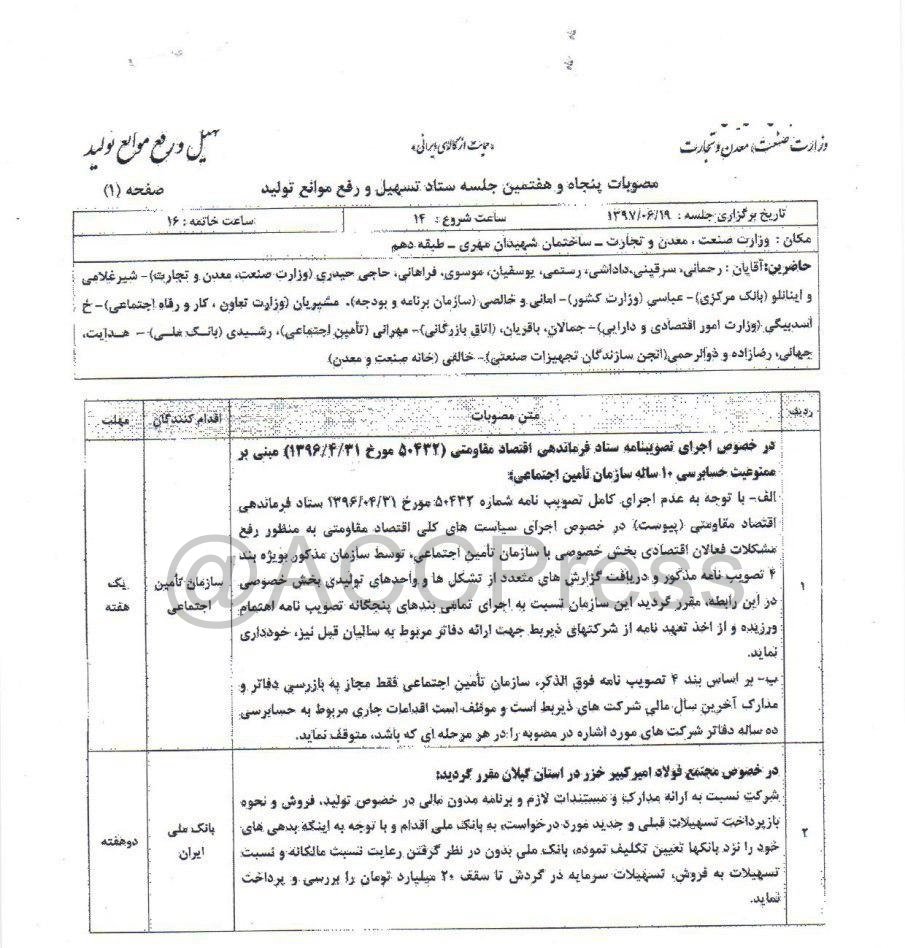 وزارت صنعت، معدن و تجارت
«حمایت از کالای ایرانی»
تسهیل و رفع موانع تولید
مصوبات پنجاه و هفتمین جلسه ستاد تسهیل و رفع موانع تولید صفحه (۱)
تاریخ برگزاری جلسه : ۱۳۹۷/۰۶/۱۹ ساعت شروع : ۱۴ ساعت خاتمه : ۱۶
مکان : وزارت صنعت ، معدن و تجارت – ساختمان شهیدان مهری – طبقه دهم
حاضرین: آقایان : رحمانی، سرقینی، داداشی، رستمی، یوسفیان، موسوی، فراهانی، حاجی حیدری (وزارت صنعت، معدن و تجارت)- شیرغلامی
و اینانلو (بانک مرکزی)- عباسی (وزارت کشور)- امانی و خالصی (سازمان برنامه و بودجه)، مشیریان (وزارت تعاون ، کار و رفاه اجتماعی)- خ
اسدبیگی (وزارت امور اقتصادی و دارایی)- جمالان، باقریان، (اتاق بازرگانی)- مهرانی (تأمین اجتماعی)، رشیدی (بانک ملی)- هدایت،
جهانی، رضازاده و ذوالرحمی (انجن سازندگان تجهیزات صنعتی)- خالقی (خانه صنعت و معدن)
ردیف متن مصوبات اقدام کنندگان مهلت
در خصوص اجرای تصویبنامه ستاد فرماندهی اقتصاد مقاومتی (۵۰۴۳۲ مورخ ۱۳۹۶/۴/۳۱) مبنی بر
ممنوعیت حسابرسی ۱۰ ساله سازمان تأمین اجتماعی:
الف- با توجه به عدم اجرای کامل تصویب نامه شماره ۵۰۴۳۲ مورخ ۱۳۹۶/۰۴/۳۱ ستاد فرماندهی
اقتصاد مقاومتی (پیوست) در خصوص اجرای سیاست های کلی اقتصاد مقاومتی به منظور رفع
مشکلات فعالان اقتصادی بخش خصوصی با سازمان تأمین اجتماعی، توسط سازمان مذکور بویژه بند
۴ تصویب نامه مذکور و دریافت گزارش های متعدد از تشکل ها و واحدهای تولیدی بخش خصوصی
در این رابطه، مقرر گردید این سازمان نسبت به اجرای تمامی بندهای پنجگانه تصویب نامه اهتمام
ورزیده و از اخذ تعهد نامه از شرکتهای ذیربط جهت ارائه دفاتر مربوط به سالیان قبل نیز، خودداری
نماید.
ب- بر اساس بند ۴ تصویب نامه فوق الذکر، سازمان تأمین اجتماعی فقط مجاز به بازرسی دفاتر و
مدارک آخرین سال مالی شرکت های ذیربط است و موظف است اقدامات جاری مربوط به حسابرسی
ده ساله دفاتر شرکت های مورد اشاره در مصوبه را در هر مرحله ای که باشد، متوقف نماید.
۱
سازمان تأمین
اجتماعی
یک
هفته
@ACCPress
در خصوص مجتمع فولاد امیرکبیر خزر در استان گیلان مقرر گردید:
شرکت نسبت به ارائه مدارک و مستندات لازم و برنامه مدون مالی در خصوص تولید، فروش و نحوه
بازپرداخت تسهیلات قبلی و جدید مورد درخواست، به بانک ملی اقدام و با توجه به اینکه بدهی های
خود را نزد بانکها تعیین تکلیف نموده، بانک ملی بدون در نظر گرفتن رعایت نسبت مالکانه و نسبت
تسهیلات به فروش، تسهیلات سرمایه در گردش تا سقف ۲۰ میلیارد تومان را بررسی و پرداخت
نماید.
۲
بانک ملی
ایران
دوهفته